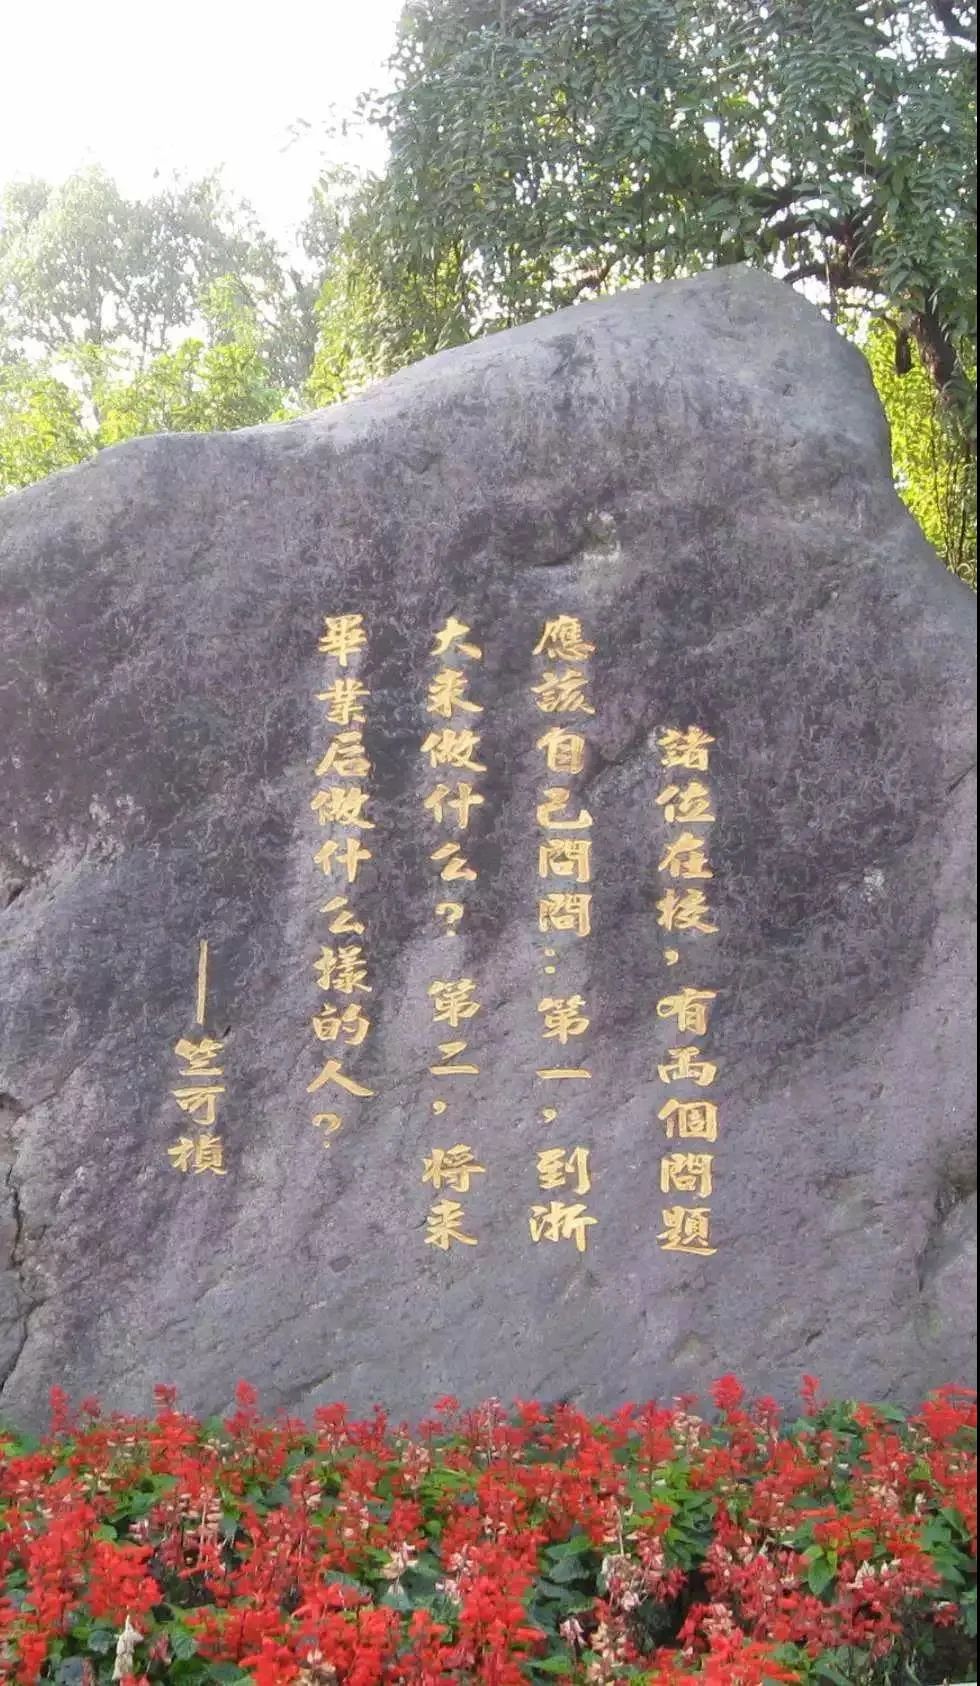 諸位在校，有两個問題
應該自己問問：第一，到浙
大来做什么？第二，将来
畢業后做什么樣的人？
——竺可楨